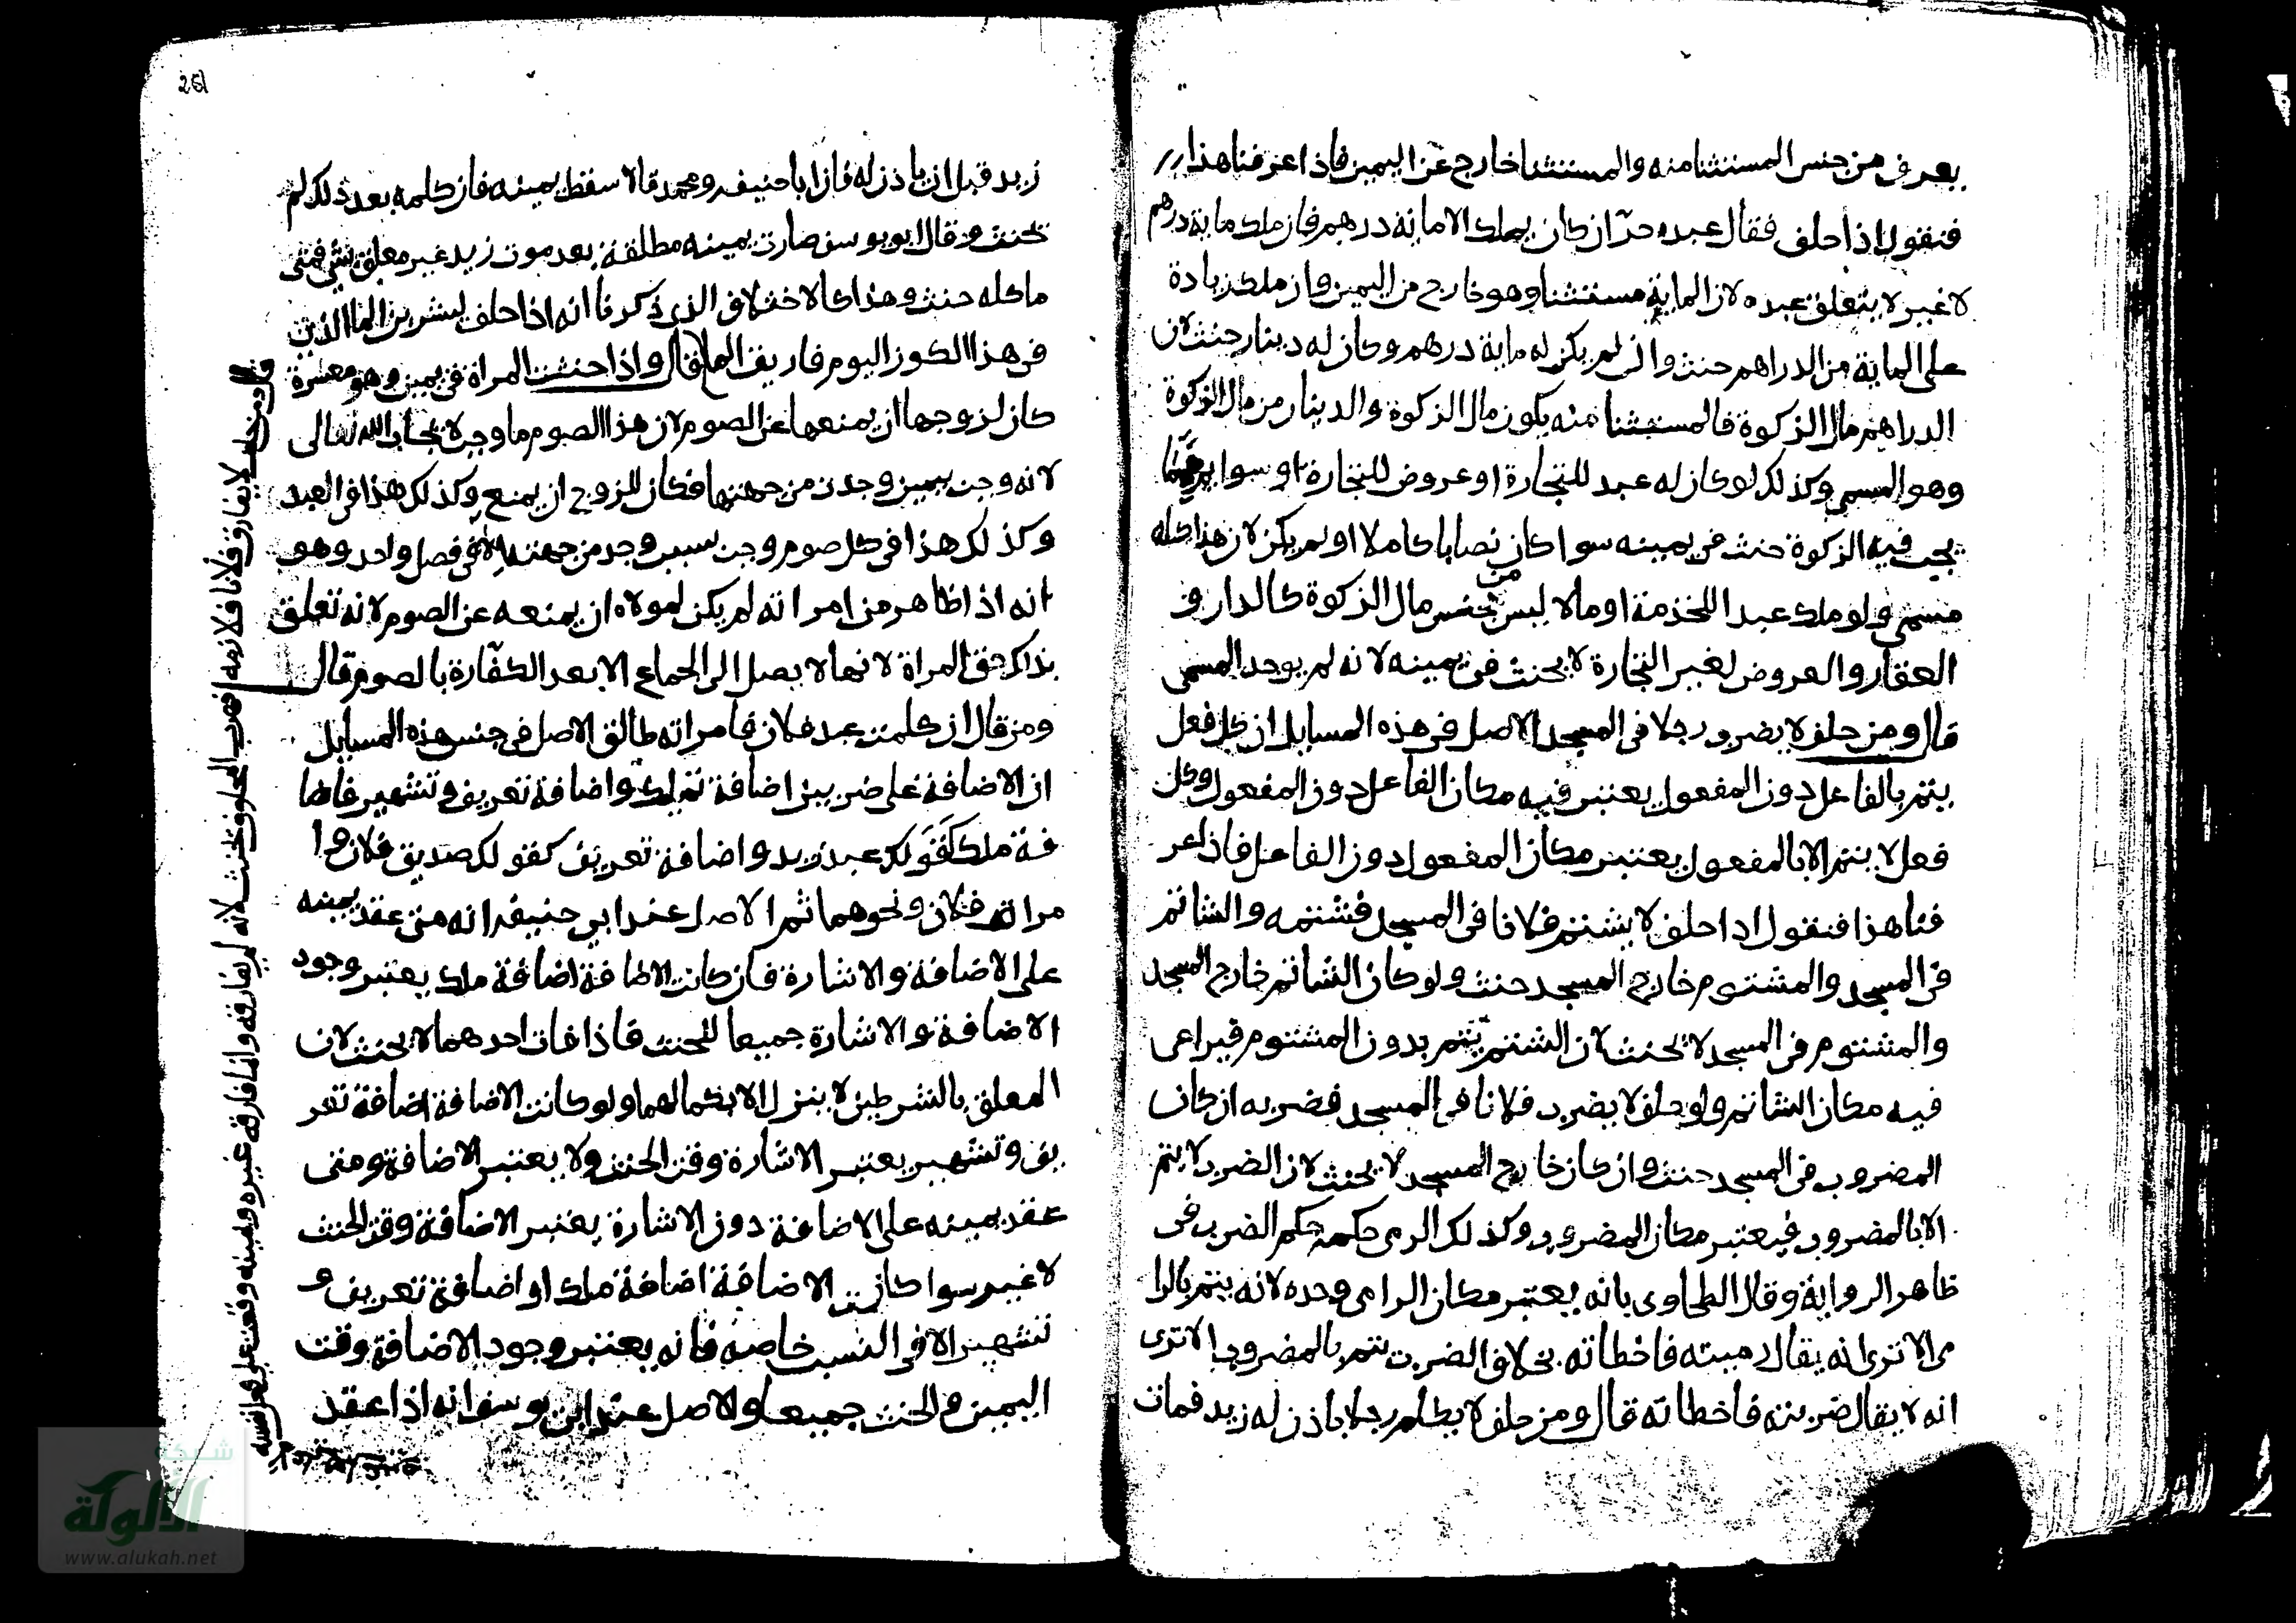 يعرف من جنس المستثنا منه والمستثنا خارج عن اليمين فاذا عرفنا هذا
فنقول اذا حلف فقال عبده حرّ ان كان يملك الا مائة درهم فان ملك ماية درهم
لا غير لا يتعلق عبده لان الماية مستثنا وهو خارج من اليمين وان ملك زيادة
على الماية من الدراهم حنث وان لم يكن له ماية درهم وكان له دينار حنث لان
الدراهم مال الزكوة فالمستثنا منه يكون مال الزكوة والدينار من مال الزكوة
وهو المسمى وكذلك لو كان له عبد للتجارة او عروض للتجارة او سوايم مما
يجب فيه الزكوة حنث في يمينه سوا كان نصابا كاملا او لم يكن لان هذا كله
مسمى ولو ملك عبدا للخدمة او مالا ليس من جنس مال الزكوة كالدار و
العقار والعروض لغير التجارة لا يحنث في يمينه لانه لم يوجد المسمى
قال ومن حلف لا يضرب رجلا في المسجد الاصل في هذه المسايل ان كل فعل
يتم بالفاعل دون المفعول يعتبر فيه مكان الفاعل دون المفعول وكل
فعل لا يتم الا بالمفعول يعتبر مكان المفعول دون الفاعل فاذا عر
فنا هذا فنقول اذا حلف لا يشتم فلانا في المسجد فشتمه والشاتم
في المسجد والمشتوم خارج المسجد حنث ولو كان الشاتم خارج المسجد
والمشتوم في المسجد لا يحنث لان الشتم يتم بدون المشتوم فيراعى
فيه مكان الشاتم ولو حلف لا يضرب فلانا في المسجد فضربه ان كان
المضروب في المسجد حنث وان كان خارج المسجد لا يحنث لان الضرب لا يتم
الا بالمضروب فيعتبر مكان المضروب وكذلك الرمى حكمه حكم الضرب في
ظاهر الرواية وقال الطحاوى بانه يعتبر مكان الرامى وحده لانه يتم بالرا
مى الا ترى انه يقال رميته فاخطاته بخلاف الضرب يتم بالمضروب الا ترى
انه لا يقال ضربته فاخطاته قال ومن حلف لا يكلم رجلا باذن له زيد فمات
261
زيد قبل ان ياذن له فان ابا حنيفه ومحمد قالا سقط يمينه فان كلمه بعد ذلك لم
يحنث وقال ابو يوسف صارت يمينه مطلقة بعد موت زيد غير معلق بشى فمتى
ما كلمه حنث وهذا كالاختلاف الذى ذكرنا انه اذا حلف ليشربن الما الذى
في هذا الكوز اليوم فاريق الما قال واذا حنثت المراة في يمين وهو معسرة
كان لزوجها ان يمنعها عن الصوم لان هذا الصوم ما وجب لا يجاب الله تعالى
لانه وجب بيمين وجدت من جهتها فكان للزوج ان يمنع وكذلك هذا في العبد
وكذلك هذا في كل صوم وجب بسبب وجد من جهته الا في فصل واحد وهو
انه اذا ظاهر من امراته لم يكن لمولاه ان يمنعه عن الصوم لانه تعلق
بذاك حق المراة لانها لا يصل الى الجماع الا بعد الكفّارة بالصوم قال
ومن قال ان كلمت عبد فلان فامراته طالق الاصل في جنس هذه المسايل
ان الاضافة على ضربين اضافة تمليك واضافة تعريف و تشهير فاضا
فة ملك كَقَولك عبد زيد واضافة تعريف كقولك صديق فلان وا
مراته فلان ونحوهما ثم الاصل عند ابي حنيفه انه متى عقد يمينه
على الاضافة والاشارة فان كانت الاضافة اضافة ملك يعتبر وجود
الاضافة والاشارة جميعا للحنث فاذا فات احدهما لا يحنث لان
المعلق بالشرطين لا ينزل الا بكمالهما ولو كانت الاضافة اضافة تعر
يف وتشهير يعتبر الاشارة وقت الحنث ولا يعتبر الاضافة ومتى
عقد يمينه على الاضافة دون الاشارة يعتبر الاضافة وقت الحنث
لا غير سوا كانت الاضافة اضافة ملك او اضافة تعريف و
تشهير الا في النسب خاصة فانه يعتبر وجود الاضافة وقت
اليمين والحنث جميعا والاصل عند ابي يوسف انه اذا عقد
قال ومن حلف لا يفارق فلانا فلازمه فهرب المحلوف يحنث لانه لم يفارقه وانما فارقه غيره ويمينه وقعت على فعل نفسه